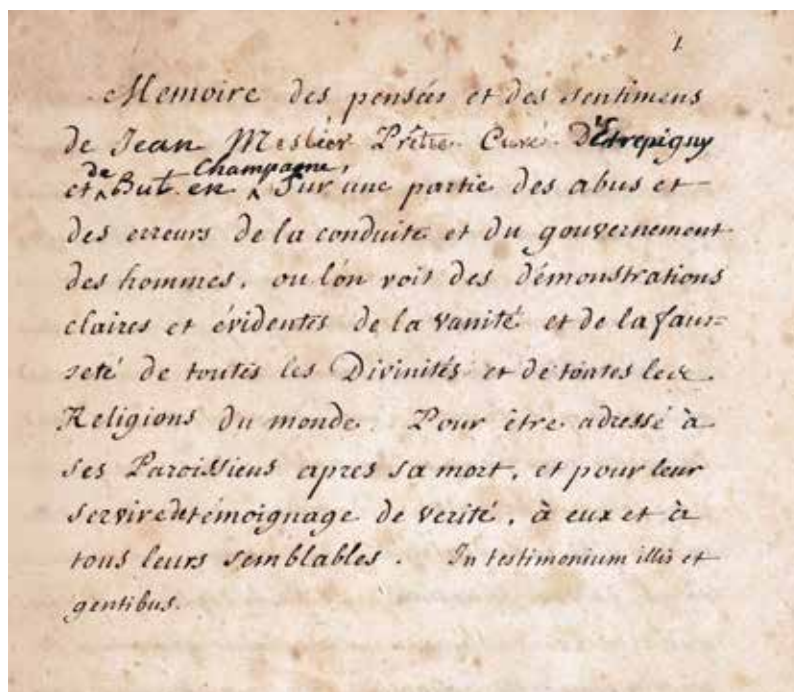 1
Memoire des pensées et des sentimens
de Jean Meslier Prêtre Curé D'Etrepigny
et de But en Champagne, Sur une partie des abus et
des erreurs de la conduite et du gouvernement
des hommes, ou l'on voit des démonstrations
claires et évidentes de la vanité et de la faus=
seté de toutes les Divinités et de toutes les
Religions du monde. Pour être adressé à
ses Paroissiens apres sa mort, et pour leur
servire de témoignage de verité, à eux et à
tous leurs semblables. In testimonium illis et
gentibus.